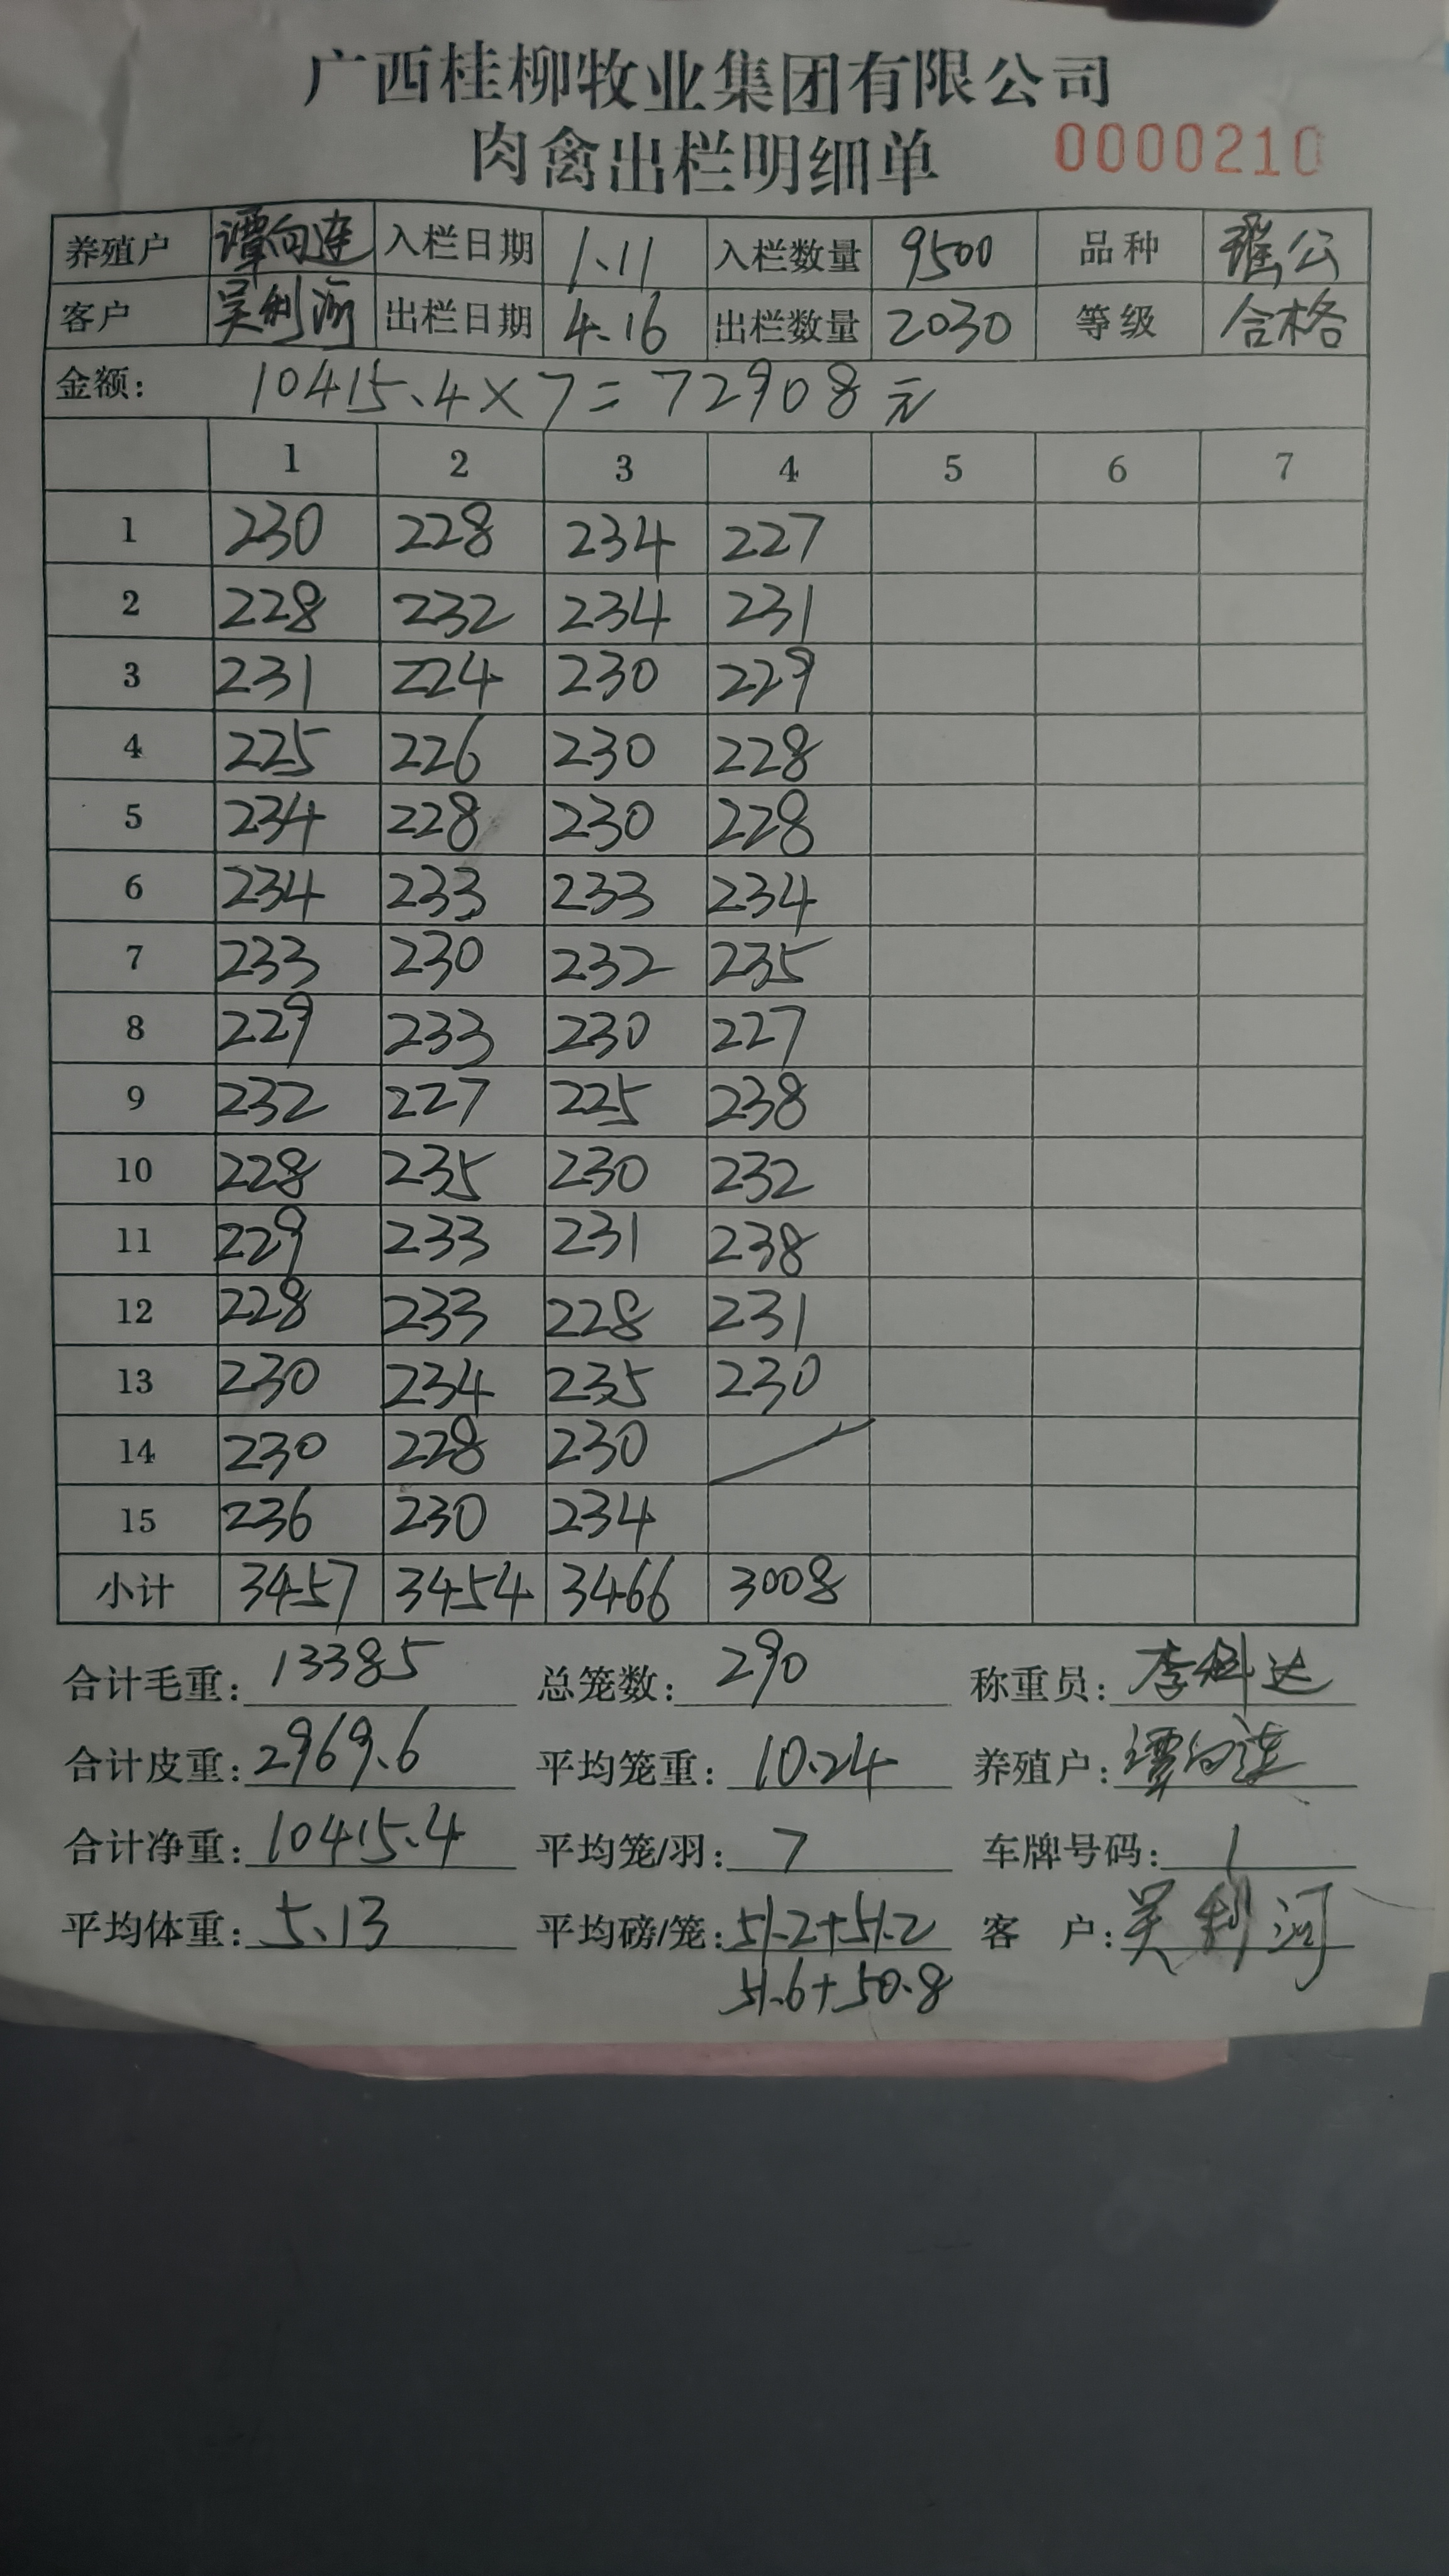 广西桂柳牧业集团有限公司
肉禽出栏明细单 0000210
养殖户 谭向连 入栏日期 1.11 入栏数量 9500 品种 瑶公
客户 吴利河 出栏日期 4.16 出栏数量 2030 等级 合格
金额: 10415.4×7=72908元
1 2 3 4 5 6 7
1 230 228 234 227
2 228 232 234 231
3 231 224 230 229
4 225 226 230 228
5 234 228 230 228
6 234 233 233 234
7 233 230 232 235
8 229 233 230 227
9 232 227 225 238
10 228 235 230 232
11 229 233 231 238
12 228 233 228 231
13 230 234 235 230
14 230 228 230
15 236 230 234
小计 3457 3454 3466 3008
合计毛重: 13385 总笼数: 290 称重员: 李科达
合计皮重: 2969.6 平均笼重: 10.24 养殖户: 谭向连
合计净重: 10415.4 平均笼/羽: 7 车牌号码: 1
平均体重: 5.13 平均磅/笼: 51.2+51.2 客户: 吴利河
51.6+50.8